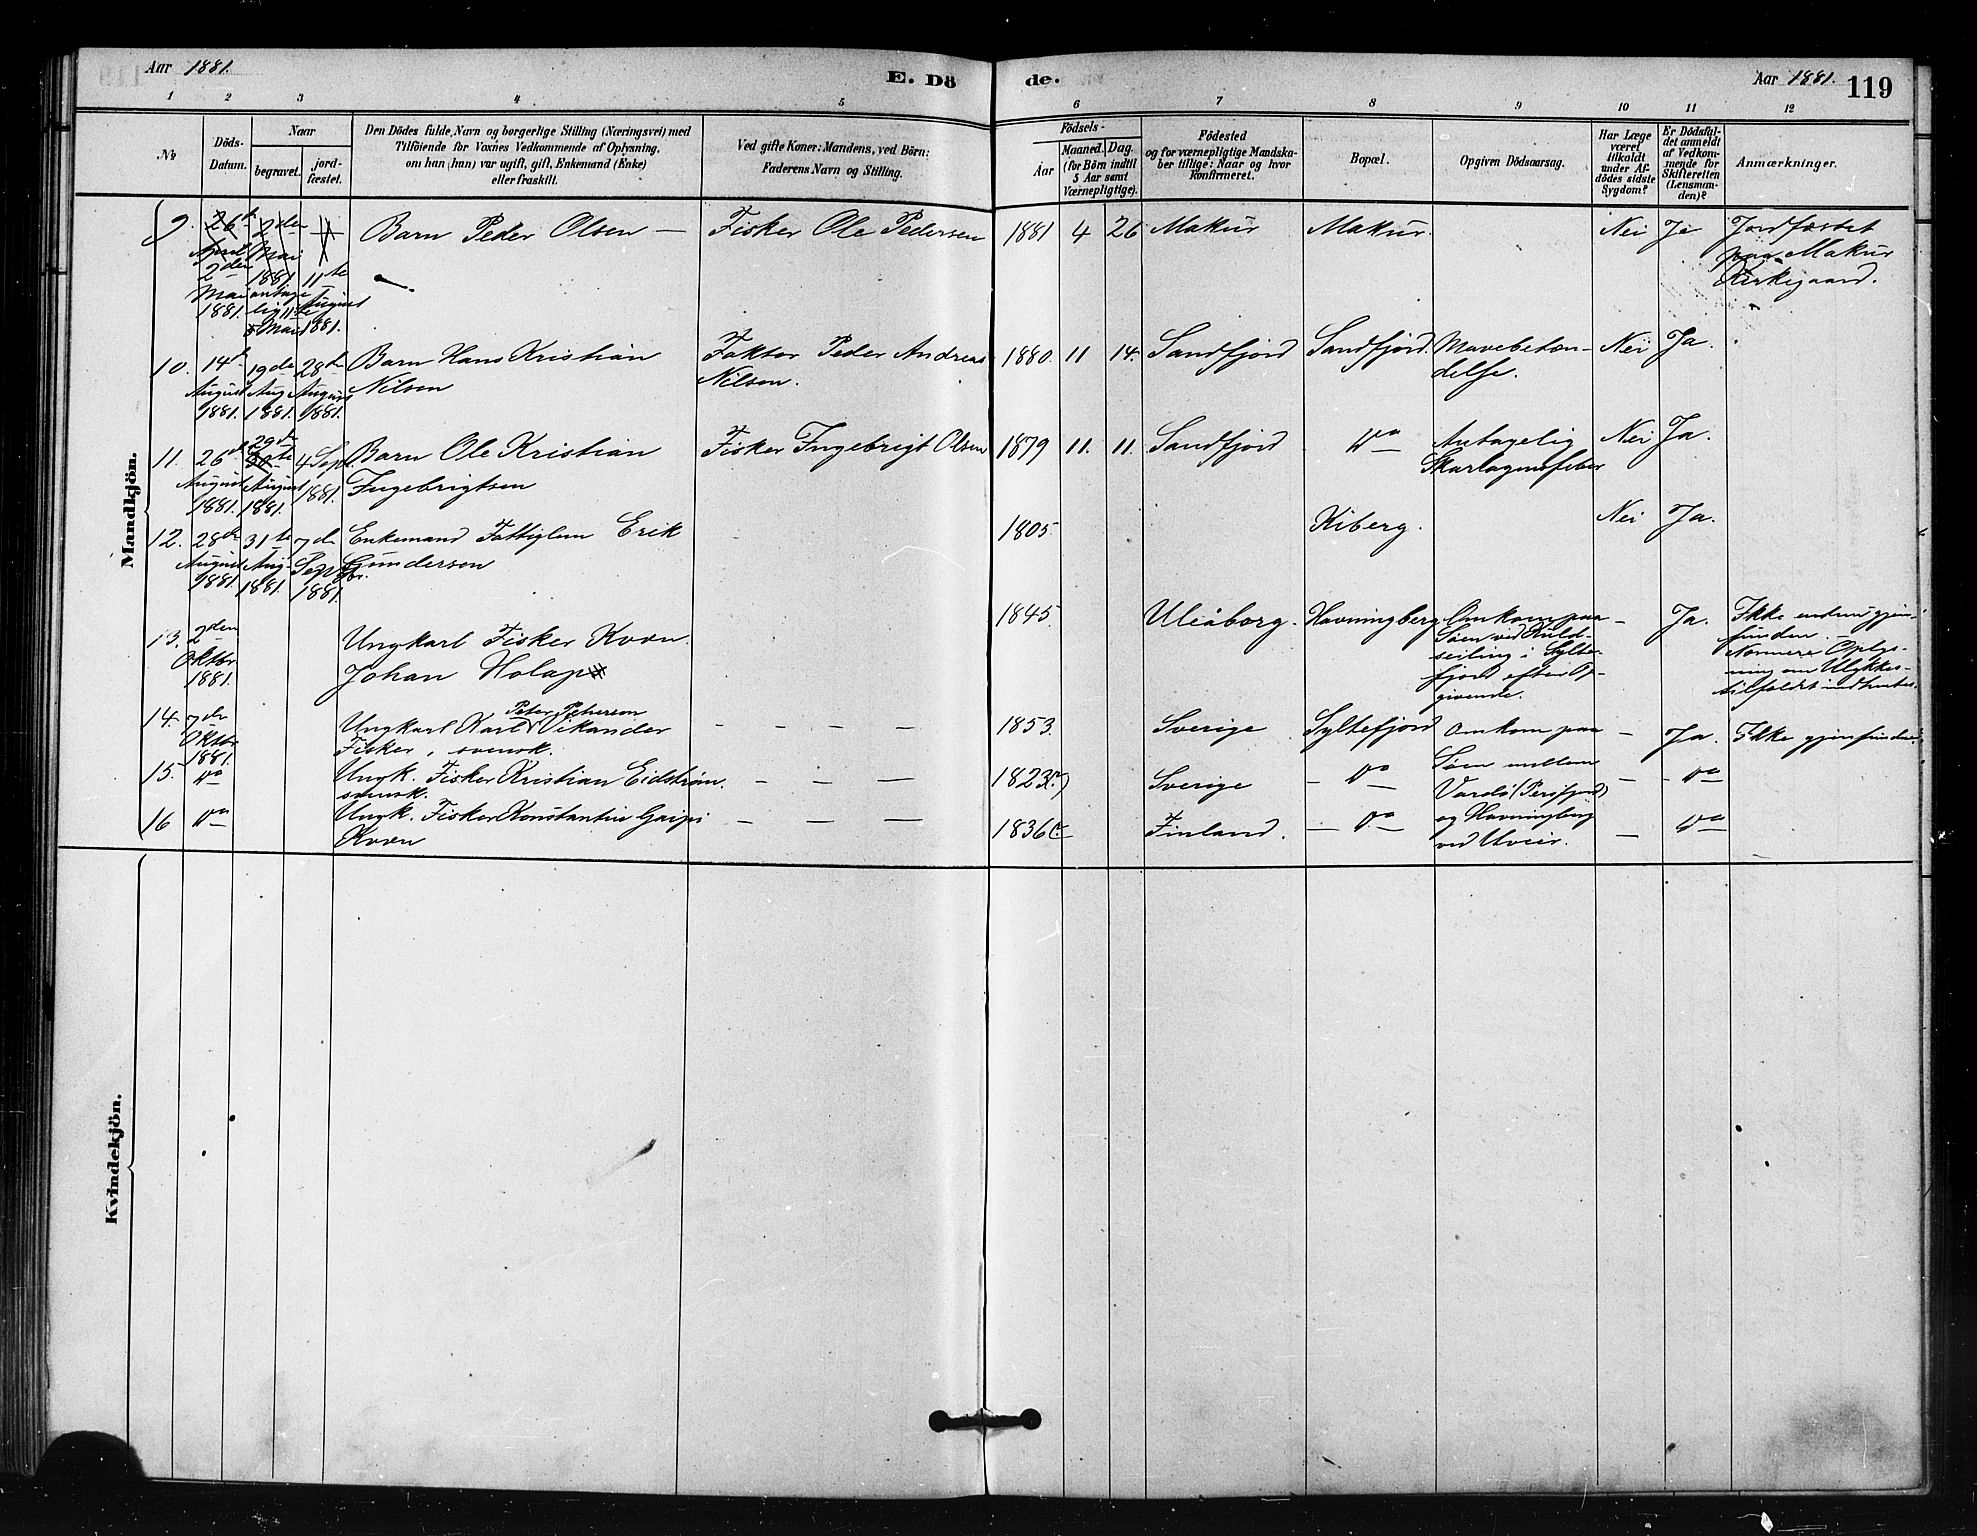 Aar 1881.
E. Dö
de.
Aar 1881.
119
1 2 3 4 5 6 7 8 9 10 11 12
No
Döds-
Datum.
Naar
begravet.
jord-
fæstet.
Den Dödes fulde Navn og borgerlige Stilling (Næringsvei) med
Tilföiende for Voxnes Vedkommende af Oplysning,
om han (hun) var ugift, gift, Enkemand (Enke)
eller fraskilt.
Ved gifte Koner: Mandens, ved Börn:
Faderens Navn og Stilling.
Födsels-
Aar
Maaned. Dag.
(for Börn indtil
5 Aar samt
Værnepligtige).
Födested
og for værnepligtige Mandska-
ber tillige: Naar og hvor
Konfirmeret.
Bopæl.
Opgiven Dödsaarsag.
Har Læge
været
tilkaldt
under Af-
dödes sidste
Sygdom?
Er Dödsfal-
det anmeldt
af Vedkom-
mende for
Skifteretten
(Lensman-
den)?
Anmærkninger.
Mandkjön.
9. 26de April 2den Mai 1881.
2den Mai 1881 antage-
lig 11te Mai
11te August 1881.
Barn Peder Olsen —
Fisker Ole Pedersen
1881 4 26 Makur Makur. Nei Ja
Jordfæstet
paa Makur
Kirkegaard.
10. 14de August 1881. 19de Aug. 1881. 28de August 1881.
Barn Hans Kristian
Nilsen
Faktor Peder Andreas
Nilsen.
1880. 11 14. Sandfjord Sandfjord. Mavebetæn-
delse.
Nei Ja.
11. 26de August 1881. 29de 30te August 1881. 4 Sept. 1881.
Barn Ole Kristian
Ingebrigtsen
Fisker Ingebrigt Olsen
1879 11. 11. Sandfjord Do Antagelig
Skarlagensfeber
Nei Ja.
12. 28de August 1881. 31te Aug. 1881. 7de Septbr. 1881.
Enkemand Fattiglem Erik
Gundersen
1805. Kiberg. Nei Ja.
13. 2den Oktbr 1881.
Ungkarl Fisker Kvæn.
Johan Holap
1845. Uleåborg. Havningberg. Omkom paa
Søen ved Kuld-
seiling i Sylte-
fjord efter Op-
givende.
— Ja. Ikke endnu gjen-
funden. —
Nærmere Oplys-
ning om Ulykkes-
tilfældet indhentes.
14. 7de Oktbr 1881.
Peter Peterson
Ungkarl Karl Vikander
Fisker, svensk.
— — — —
1853. Sverige Syltefjord Omkom paa
— Ja. Ikke gjenfunden.
15. Do
Ungk. Fisker Kristian Eidstrøm.
svensk.
— — —
1823(?) Sverige — Do — Søen mellem
Vardø (Persfjord)
— Do
16 Do
Ungk. Fisker Konstantin
Kvæn
— — —
1836 Finland. — Do — og Havningberg
ved Uveir.
— Do
Kvindekjön.